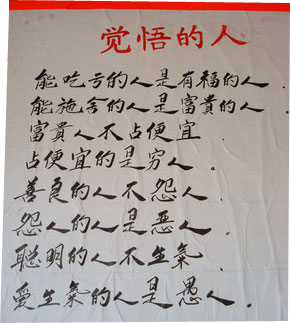 觉悟的人
能吃亏的人是有福的人.
能施舍的人是富贵的人.
富贵人不占便宜
占便宜的是穷人.
善良的人不怨人.
怨人的人是恶人.
聪明的人不生氣.
爱生氣的人是愚人.